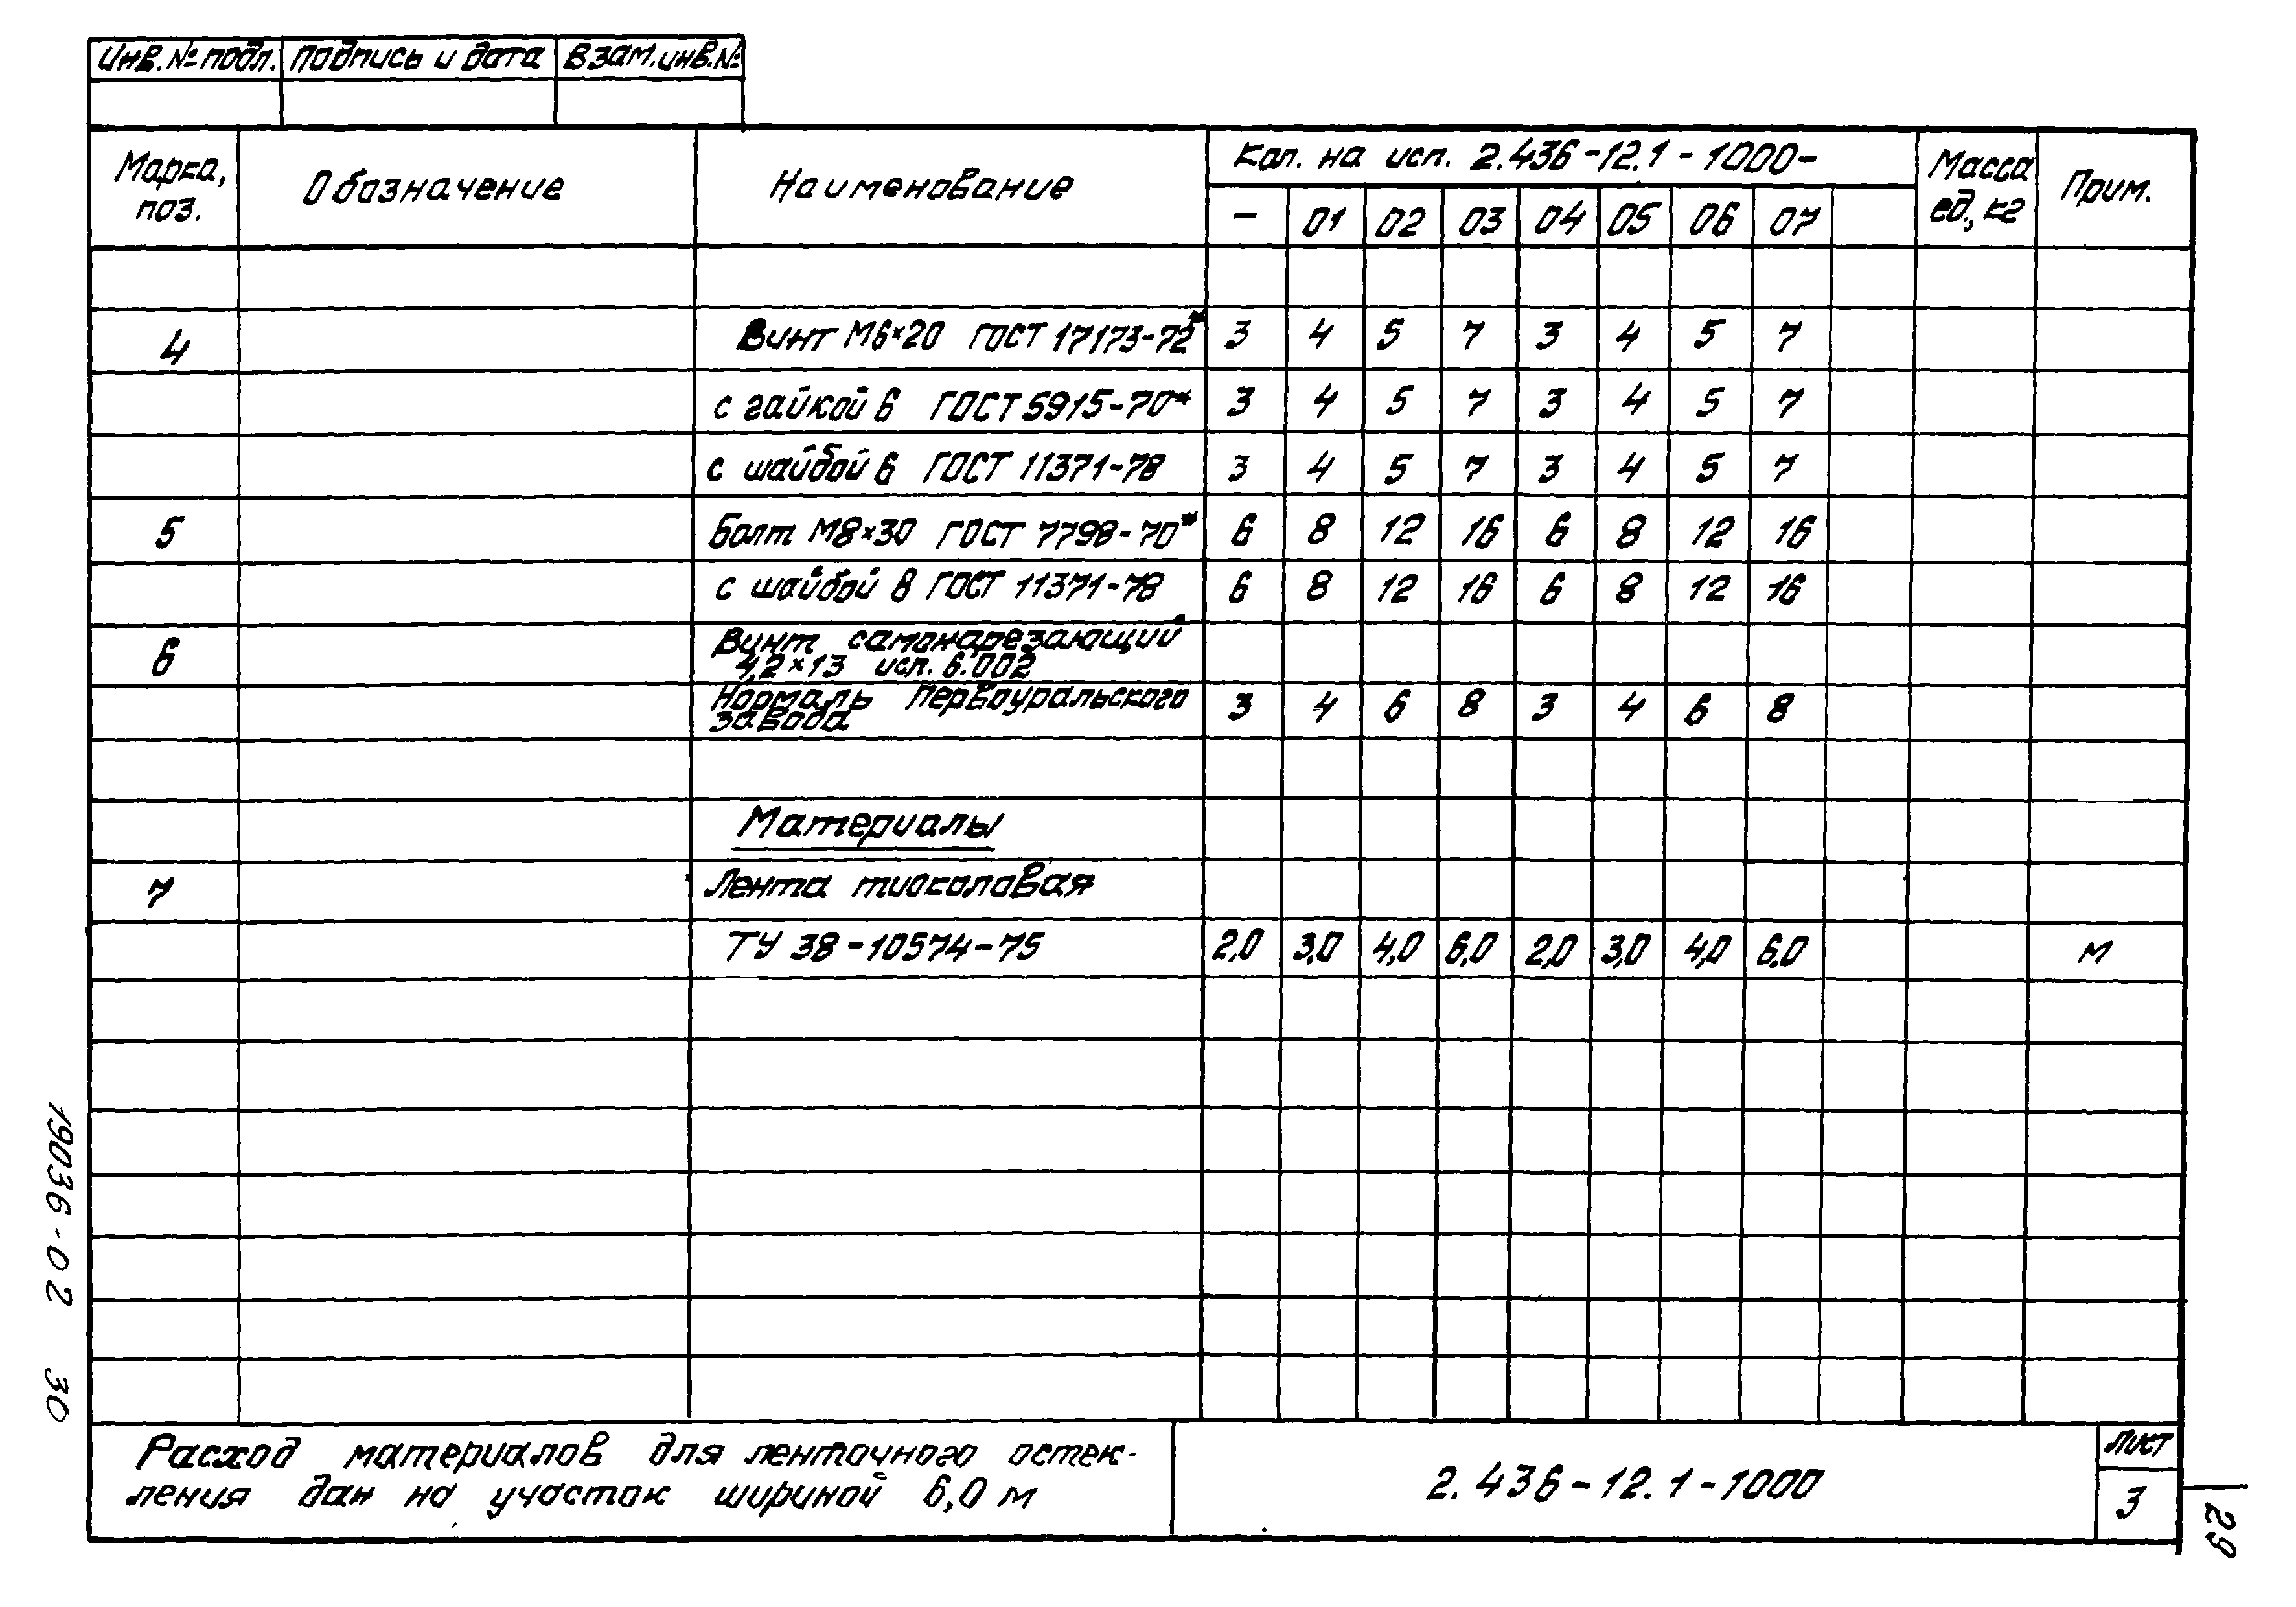 Инв. № подл. Подпись и дата Взам. инв. №
Марка, поз. Обозначение Наименование Кол. на исп. 2.436-12.1-1000- Масса ед., кг Прим.
- 01 02 03 04 05 06 07
4 Винт М6×20 ГОСТ 17173-72* 3 4 5 7 3 4 5 7
с гайкой 6 ГОСТ 5915-70* 3 4 5 7 3 4 5 7
с шайбой 6 ГОСТ 11371-78 3 4 5 7 3 4 5 7
5 Болт М8×30 ГОСТ 7798-70* 6 8 12 16 6 8 12 16
с шайбой 8 ГОСТ 11371-78 6 8 12 16 6 8 12 16
6 Винт самонарезающий
4,2×13 исп. 6.002
Нормаль Первоуральского
завода 3 4 6 8 3 4 6 8
Материалы
7 Лента тиоколовая
ТУ 38-10574-75 2,0 3,0 4,0 6,0 2,0 3,0 4,0 6,0 м
Расход материалов для ленточного остек-
ления дан на участок шириной 6,0 м
2.436-12.1-1000
Лист
3
19036-02 30
29